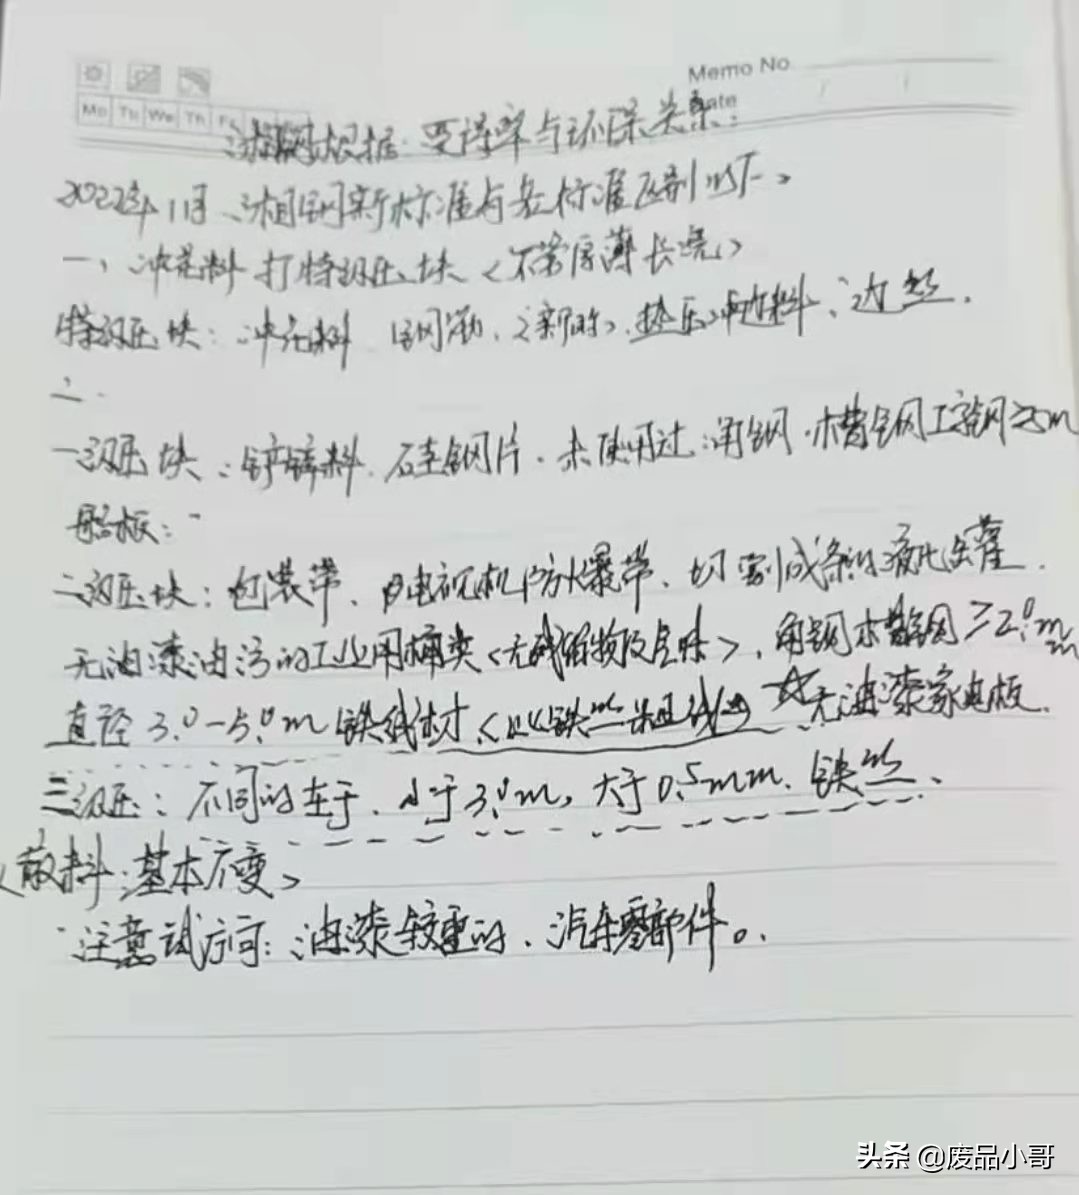 Memo No
Mo Tu We Th Fr
Date
湘钢根据:要得率与环保关系:
2022年11月、湘钢新标准与老标准区别以下。
一、冲花料打特级压块〈不管厚薄长宽〉
特级压块:冲花料、钢筋、〈新的〉、热压冲边料、边丝.
二.
一级压块:镀锌料、硅钢片、未使用过:角钢、槽钢工字钢
船板:
二级压块:包装带、电视机防爆带、切割成条的液化气罐.
无油漆油污的工业用桶类〈无碱 物及 味〉、角钢槽钢≥2.0mm
直径3.0-5.0m铁线材、 无油漆家电板.
三级压:不同的在于、小于3.0m,大于0.5mm、铁丝、
〈散料:基本不变〉
注意试方向:油漆较重的、汽车零部件。
头条 @废品小哥